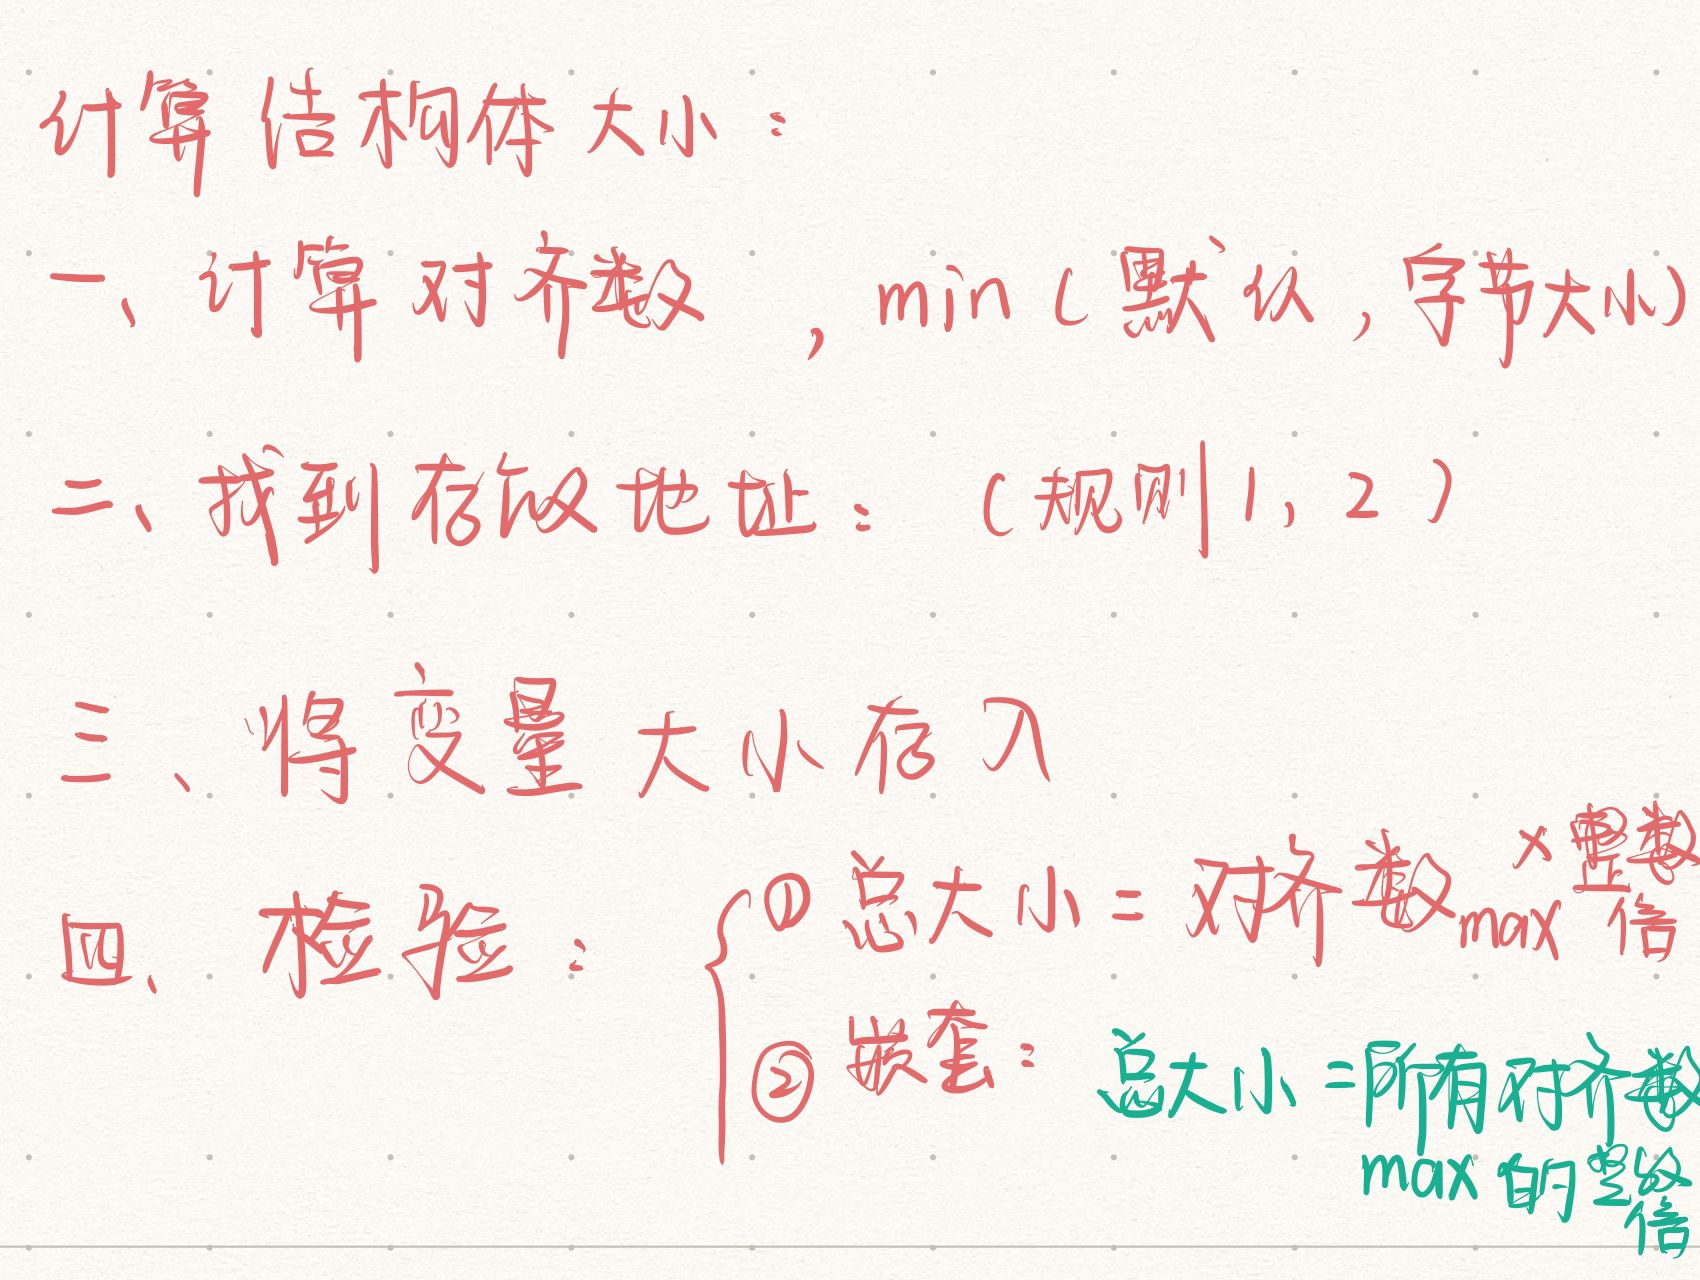 计算结构体大小：
一、计算对齐数，min（默认，字节大小）
二、找到存放地址：（规则1，2）
三、将变量大小存入
四、检验：
①总大小=对齐数max×整数倍
②嵌套：总大小=所有对齐数
max的整数倍